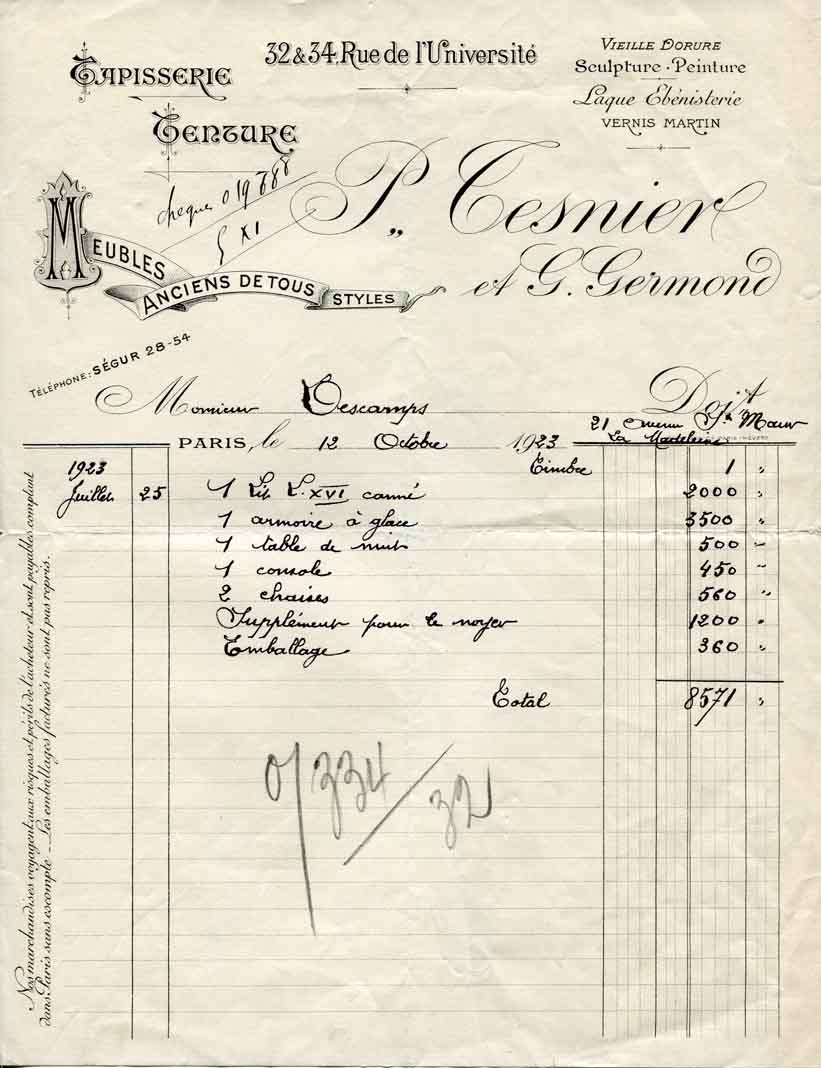 32 & 34, Rue de l'Université
TAPISSERIE
TENTURE
VIEILLE DORURE
Sculpture · Peinture
Laque Ebénisterie
VERNIS MARTIN
cheque 019788
5 XI
P. Tesnier
et G. Germond
MEUBLES
ANCIENS DE TOUS
STYLES
TÉLÉPHONE: SÉGUR 28-54
Monsieur Descamps Doit
21 avenue St Maur
La Madeleine
PARIS, le 12 Octobre 1923
1923 Timbre 1 "
Juillet 25 1 Lit L. XVI canné 2000 "
1 armoire à glace 3500 "
1 table de nuit 500 "
1 console 450 "
2 chaises 560 "
Supplément pour le noyer 1200 "
Emballage 360 "
Total 8571 "
334
32
Nos marchandises voyagent aux risques et périls de l'acheteur et sont payables comptant
dans Paris sans escompte - Les emballages facturés ne sont pas repris.